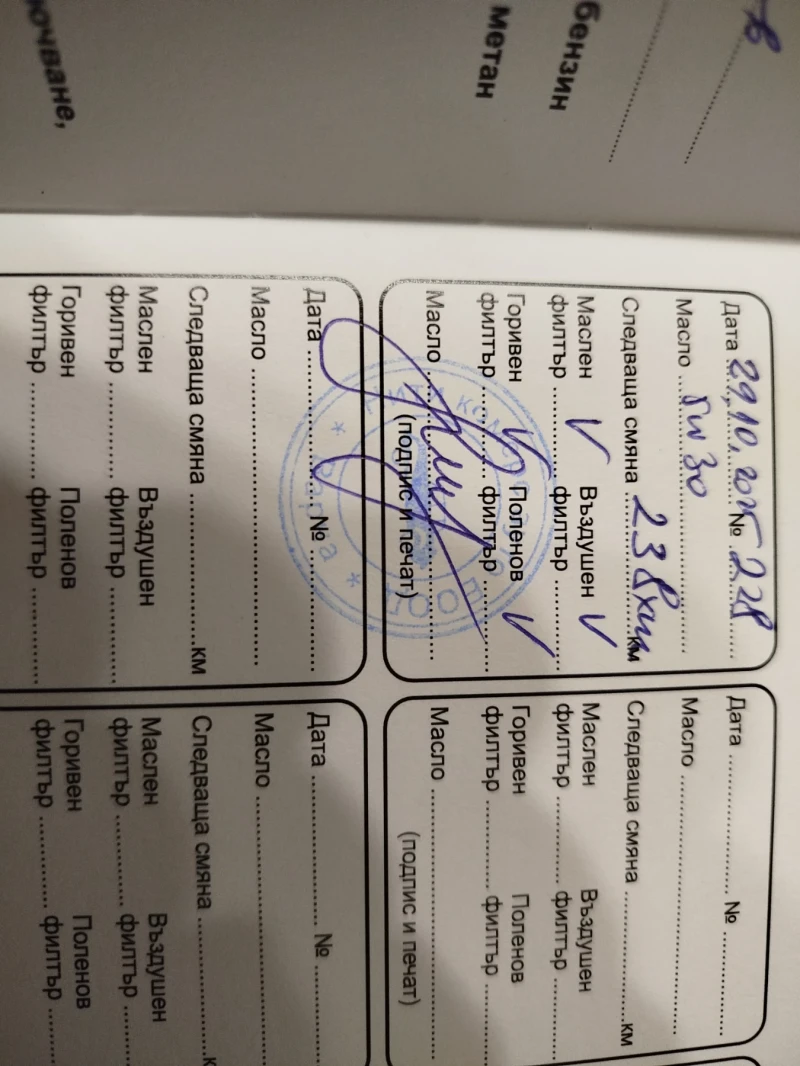 в
бензин
метан
ючване,
Дата 29.10.2025 № 228
Масло 5w30
Следваща смяна 238 хил км
Маслен филтър V Въздушен филтър V
Горивен филтър V Поленов филтър V
Масло
(подпис и печат)
Дата № 
Масло
Следваща смяна км
Маслен филтър Въздушен филтър
Горивен филтър Поленов филтър
Дата №
Масло
Следваща смяна км
Маслен филтър Въздушен филтър
Горивен филтър Поленов филтър
Масло
(подпис и печат)
Дата №
Масло
Следваща смяна к
Маслен филтър Въздушен филтър
Горивен филтър Поленов филтър